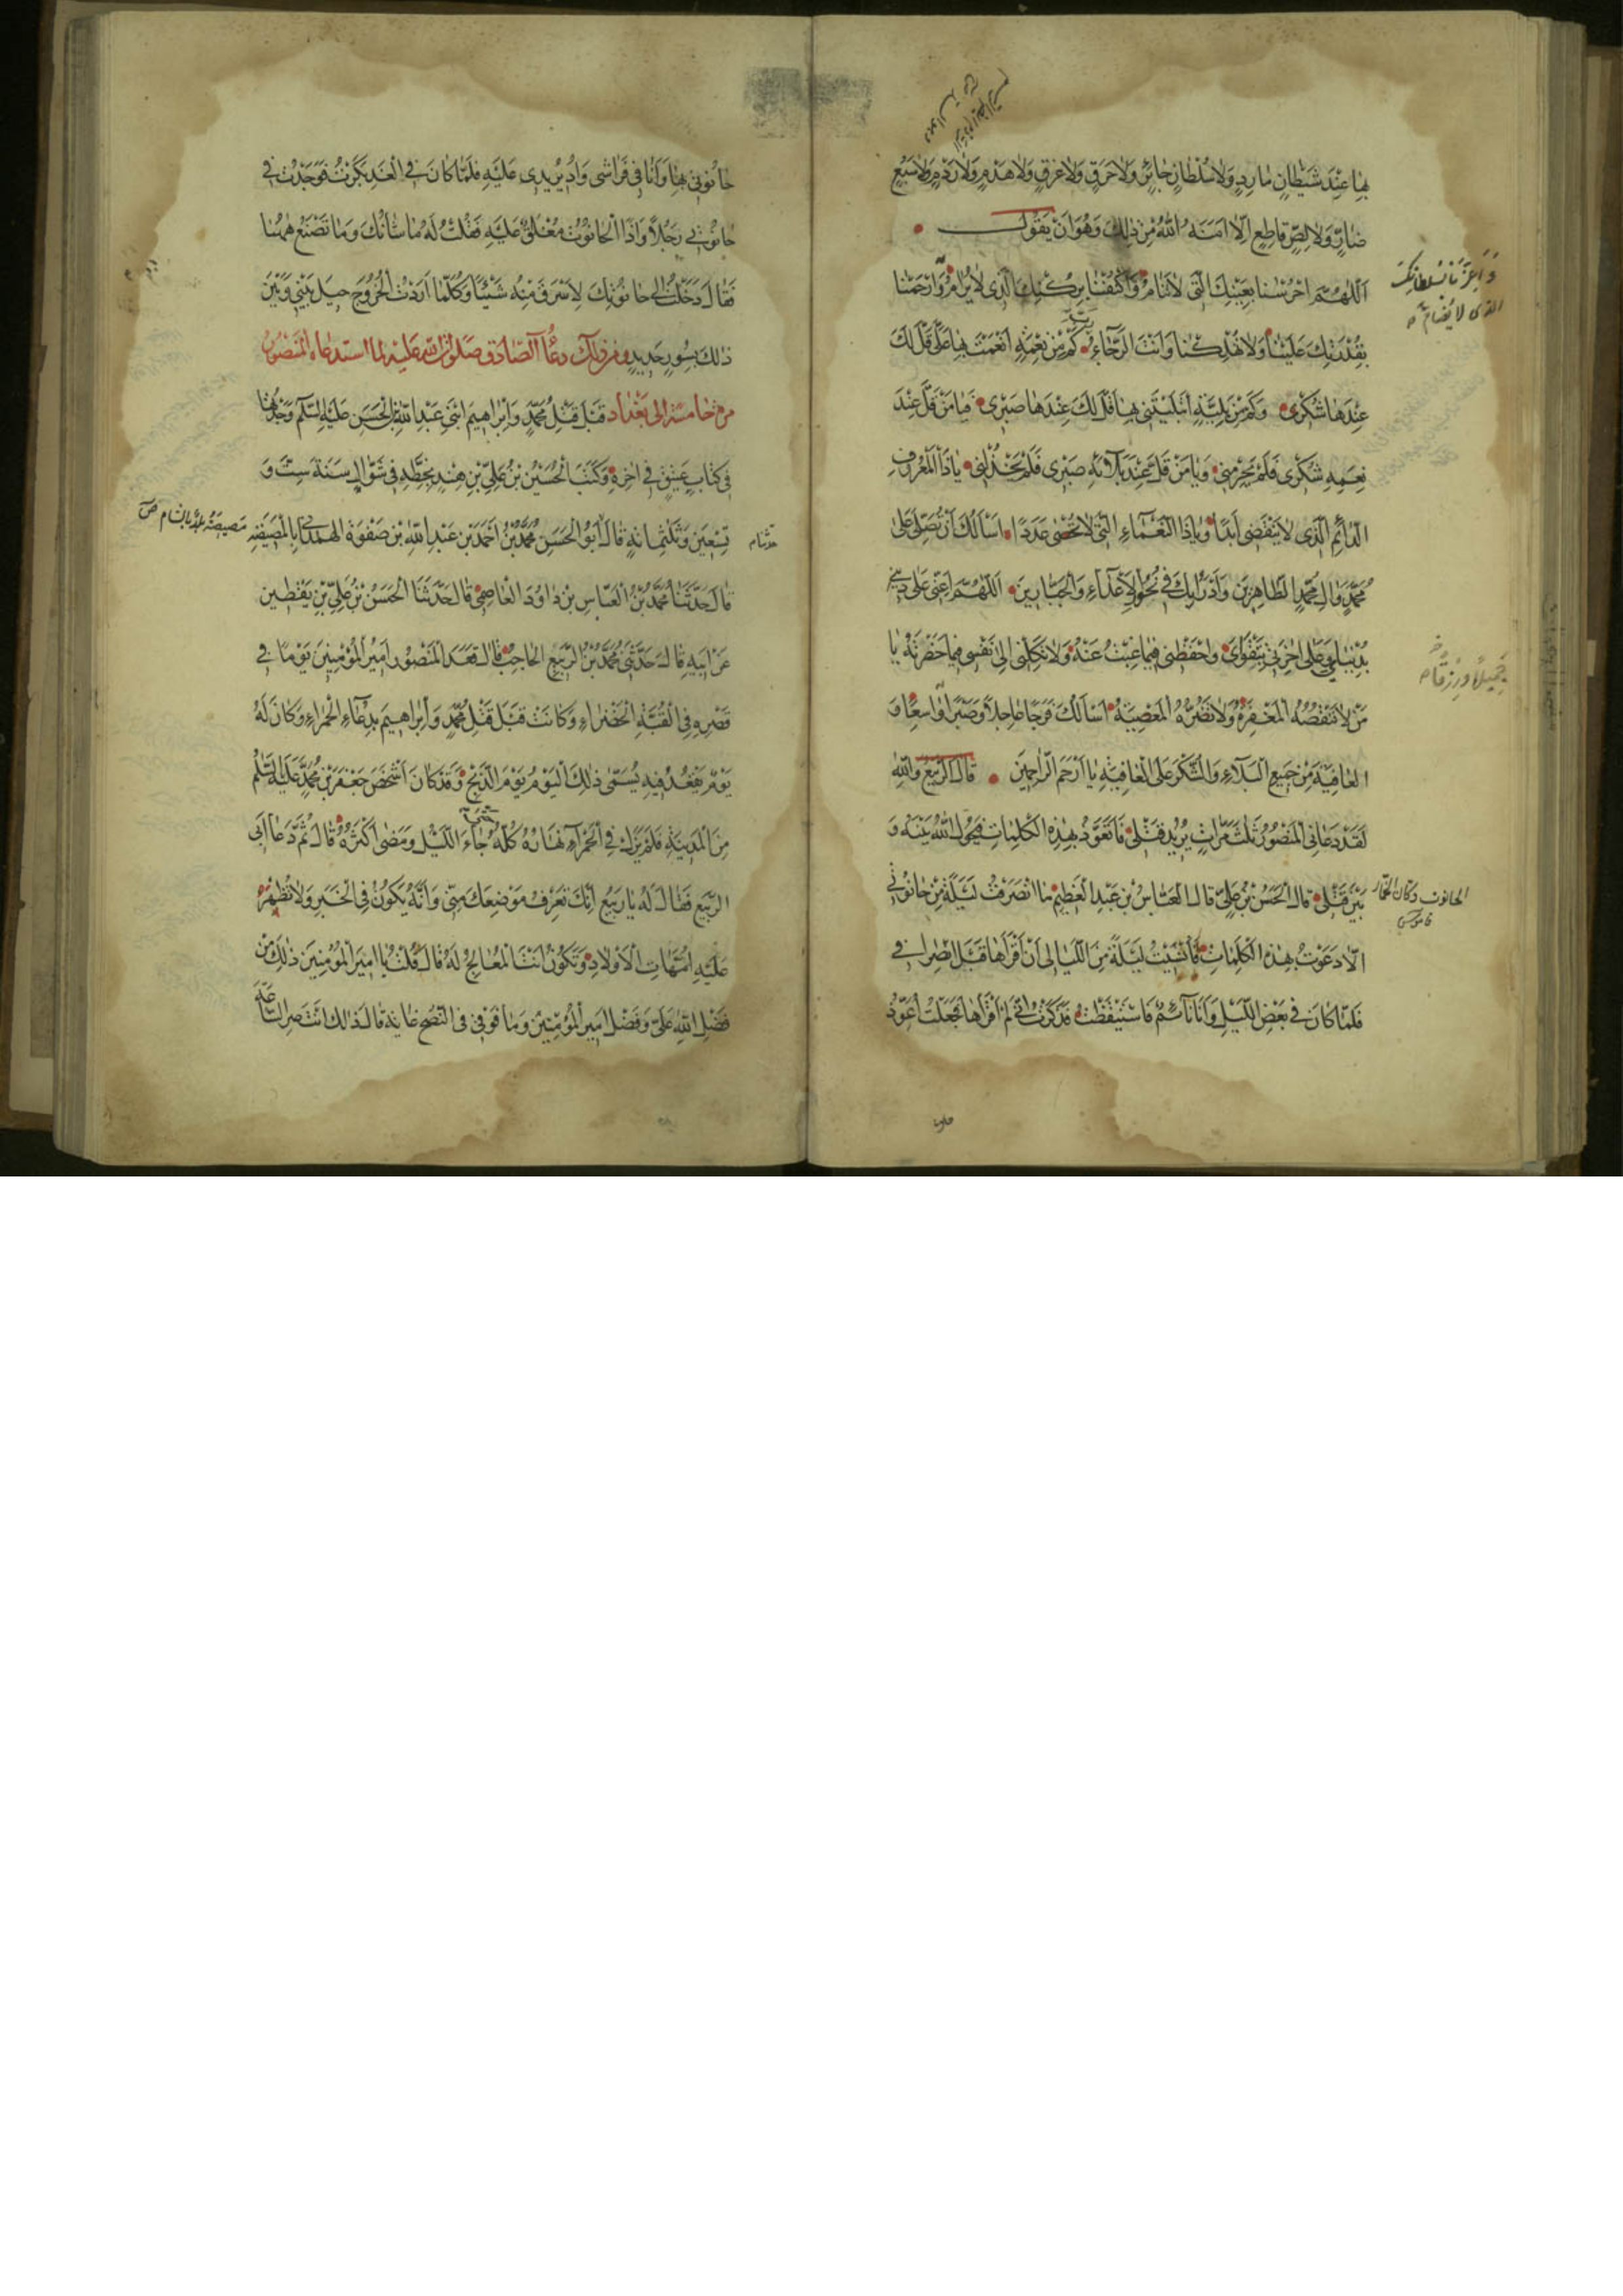 بِهَا عِنْدَ شَيْطَانٍ مَارِدٍ وَلَا سُلْطَانٍ جَائِرٍ وَلَا حَرَقٍ وَلَا غَرَقٍ وَلَا هَدْمٍ وَلَا رَدْمٍ وَلَا سَبُعٍ
ضَارٍّ وَلَا لِصٍّ قَاطِعٍ اِلَّا امَنَهُ اللهُ مِنْ ذٰلِكَ وَهُوَ اَنْ يَقُولَ
اَللّٰهُمَّ احْرُسْنَا بِعَيْنِكَ الَّتِي لَا تَنَامُ وَاكْنُفْنَا بِرُكْنِكَ الَّذِي لَا يُرَامُ وَارْحَمْنَا
وَ اَعِزَّنَا بِسُلْطَانِكَ
الذی لا یُضام
بِقُدْرَتِكَ عَلَيْنَا وَلَا تُهْلِكْنَا وَاَنْتَ الرَّجَاءُ رَبِّ كَمْ مِنْ نِعْمَةٍ اَنْعَمْتَ بِهَا عَلَيَّ قَلَّ لَكَ
عِنْدَهَا شُكْرِي وَكَمْ مِنْ بَلِيَّةٍ اِبْتَلَيْتَنِي بِهَا قَلَّ لَكَ عِنْدَهَا صَبْرِي فَيَا مَنْ قَلَّ عِنْدَ
نِعَمِهِ شُكْرِي فَلَمْ يَحْرِمْنِي وَيَا مَنْ قَلَّ عِنْدَ بَلَائِهِ صَبْرِي فَلَمْ يَخْذُلْنِي يَا ذَا الْمَعْرُوفِ
الدَّائِمِ الَّذِي لَا يَنْقَضِي اَبَدًا وَيَا ذَا النَّعْمَاءِ الَّتِي لَا تُحْصَى عَدَدًا اَسْاَلُكَ اَنْ تُصَلِّيَ عَلَى
مُحَمَّدٍ وَالِ مُحَمَّدٍ الطَّاهِرِينَ وَاَدْرَأُ بِكَ فِي نُحُورِ الْاَعْدَاءِ وَالْجَبَّارِينَ اَللّٰهُمَّ اَعِنِّي عَلَى دِينِي
بِدُنْيَايَ وَعَلَى اخِرَتِي بِتَقْوَايَ وَاحْفَظْنِي فِيمَا غِبْتُ عَنْهُ وَلَا تَكِلْنِي اِلَى نَفْسِي فِيمَا حَضَرْتُهُ يَا
مَنْ لَا تَنْقُصُهُ الْمَغْفِرَةُ وَلَا تَضُرُّهُ الْمَعْصِيَةُ اَسْاَلُكَ فَرَجًا عَاجِلًا وَصَبْرًا وَاسِعًا وَ
جَمِيلًا وَرِزْقًا
الْعَافِيَةَ مِنْ جَمِيعِ الْبَلَاءِ وَالشُّكْرَ عَلَى الْعَافِيَةِ يَا اَرْحَمَ الرَّاحِمِينَ قَالَ الرَّبِيعُ وَاللهِ
لَقَدْ دَعَانِي الْمَنْصُورُ ثَلٰثَ مَرَّاتٍ يُرِيدُ قَتْلِي فَاَتَعَوَّذُ بِهٰذِهِ الْكَلِمَاتِ فَيَحُولُ اللهُ بَيْنَهُ وَ
بَيْنَ قَتْلِي قَالَ الْحَسَنُ بْنُ عَلِيٍّ قَالَ الْعَبَّاسُ بْنُ عَبْدِ الْعَظِيمِ مَا انْصَرَفْتُ لَيْلَةً مِنْ حَانُوتِي
الحانوت دكان الخمار
قاموس
اِلَّا دَعَوْتُ بِهٰذِهِ الْكَلِمَاتِ فَاُنْسِيتُ لَيْلَةً مِنَ اللَّيَالِي اَنْ اَقْرَاَهَا قَبْلَ انْصِرَافِي
فَلَمَّا كَانَ فِي بَعْضِ اللَّيْلِ وَاَنَا نَائِمٌ فَاسْتَيْقَظْتُ فَذَكَرْتُ اَنِّي لَمْ اَقْرَاْهَا فَجَعَلْتُ اُعَوِّذُ
حَانُوتِي بِهَا وَاَنَا فِي فِرَاشِي وَاُدِيرُ يَدِي عَلَيْهِ فَلَمَّا كَانَ فِي الْغَدِ بَكَّرْتُ فَوَجَدْتُ فِي
حَانُوتِي رَجُلًا وَاِذَا الْحَانُوتُ مُغْلَقٌ عَلَيْهِ فَقُلْتُ لَهُ مَا شَانُكَ وَمَا تَصْنَعُ هٰهُنَا
فَقَالَ دَخَلْتُ اِلَى حَانُوتِكَ لِاَسْرِقَ مِنْهُ شَيْئًا وَكُلَّمَا اَرَدْتُ الْخُرُوجَ حِيلَ بَيْنِي وَبَيْنَ
ذٰلِكَ بِسُورٍ حَدِيدٍ ومن ذلك دعاء الصادق صلوات الله عليه لما استدعاه المنصور
مرة خامسة الى بغداد قَبْلَ قَتْلِ مُحَمَّدٍ وَاِبْرَاهِيمَ ابْنَيْ عَبْدِ اللهِ بْنِ الْحَسَنِ عَلَيْهِ السَّلَامُ وَجَدْتُهَا
فِي كِتَابٍ عَتِيقٍ فِي اخِرِهِ وَكَتَبَ الْحُسَيْنُ بْنُ عَلِيِّ بْنِ هِنْدٍ بِخَطِّهِ فِي شَوَّالٍ سَنَةَ سِتٍّ وَ
تِسْعِينَ وَثَلٰثِمِائَةٍ قَالَ اَبُو الْحَسَنِ مُحَمَّدُ بْنُ اَحْمَدَ بْنِ عَبْدِ اللهِ بْنِ صَفْوَةَ الْهَمْدَانِيُّ بِالْمَصِّيصَةِ
مَصِيصَة بلد بالشام ص
قَالَ حَدَّثَنَا مُحَمَّدُ بْنُ الْعَبَّاسِ بْنِ دَاوُدَ الْعَاصِمِيُّ قَالَ حَدَّثَنَا الْحَسَنُ بْنُ عَلِيِّ بْنِ يَقْطِينٍ
عَنْ اَبِيهِ قَالَ حَدَّثَنِي مُحَمَّدُ بْنُ الرَّبِيعِ الْحَاجِبُ قَالَ قَعَدَ الْمَنْصُورُ اَمِيرُ الْمُؤْمِنِينَ يَوْمًا فِي
قَصْرِهِ فِي الْقُبَّةِ الْخَضْرَاءِ وَكَانَتْ قَبْلَ قَتْلِ مُحَمَّدٍ وَاِبْرَاهِيمَ تُدْعَى الْحَمْرَاءَ وَكَانَ لَهُ
يَوْمٌ يَقْعُدُ فِيهِ يُسَمَّى ذٰلِكَ الْيَوْمُ يَوْمَ الذَّبْحِ وَقَدْ كَانَ اَشْخَصَ جَعْفَرَ بْنَ مُحَمَّدٍ عَلَيْهِ السَّلَامُ
مِنَ الْمَدِينَةِ فَلَمْ يَزَلْ فِي الْحَمْرَاءِ نَهَارَهُ كُلَّهُ حَتَّى جَاءَ اللَّيْلُ وَمَضَى اَكْثَرُهُ قَالَ ثُمَّ دَعَا اَبِي
الرَّبِيعَ فَقَالَ لَهُ يَا رَبِيعُ اِنَّكَ تَعْرِفُ مَوْضِعَكَ مِنِّي وَاَنَّهُ يَكُونُ فِي الْخَبَرِ وَلَا تُظْهِرُ
عَلَيْهِ اُمَّهَاتِ الْاَوْلَادِ وَتَكُونُ اَنْتَ الْمُعَالِجُ لَهُ قَالَ قُلْتُ يَا اَمِيرَ الْمُؤْمِنِينَ ذٰلِكَ مِنْ
فَضْلِ اللهِ عَلَيَّ وَفَضْلِ اَمِيرِ الْمُؤْمِنِينَ وَمَا فَوْقِي فِي النُّصْحِ غَايَةٌ قَالَ كَذٰلِكَ اَنْتَ صِرِ السَّاعَةَ